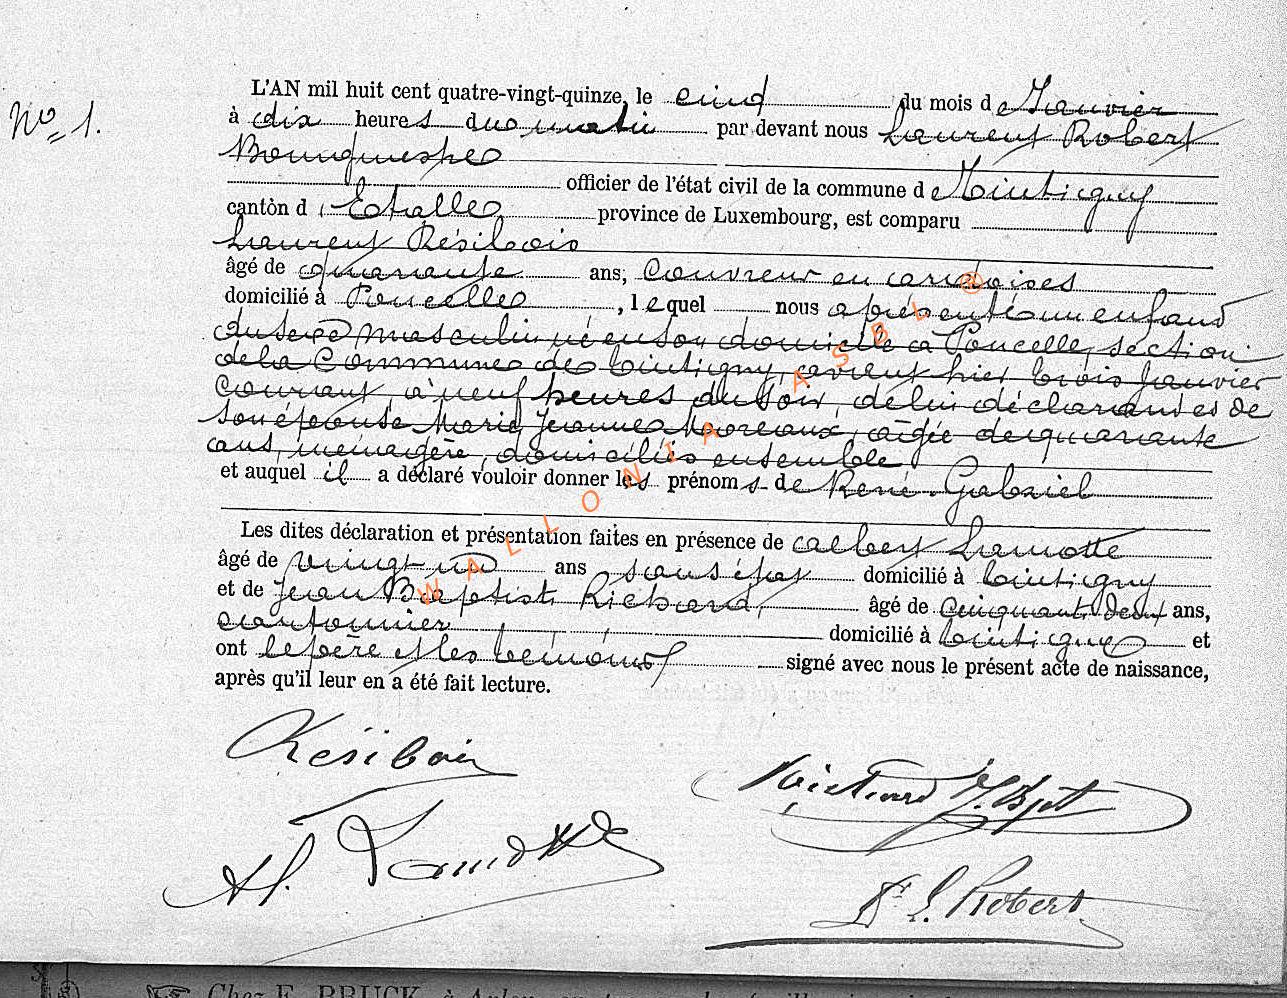 No 1.
L'AN mil huit cent quatre-vingt-quinze, le cinq du mois de Janvier
à dix heures du matin par devant nous Laurent Robert
Bourgmestre
officier de l'état civil de la commune de Tintigny
cantòn d'Etalle province de Luxembourg, est comparu
Laurent Résibois
âgé de quarante ans, couvreur en ardoises
domicilié à Poncelle, lequel nous a présenté un enfant
du sexe masculin né en son domicile à Poncelle, section
de la Commune de Tintigny, avant hier trois Janvier
courant, à neuf heures du soir, de lui déclarant et de
son épouse Marie Jeanne Moreaux, âgée de quarante
ans, ménagère, domiciliés ensemble
et auquel il a déclaré vouloir donner les prénoms de René Gabriel
Les dites déclaration et présentation faites en présence de Albert Lamotte
âgé de vingt un ans sans état domicilié à Tintigny
et de Jean Baptiste Richard, âgé de cinquante deux ans,
cantonnier domicilié à Tintigny et
ont le père et les témoins signé avec nous le présent acte de naissance,
après qu'il leur en a été fait lecture.
Résibois
Richard J. Bpt
A. Lamotte
Dr L. Robert
WALLONIA ASBL @
Chez E. BRUCK, à Arlon